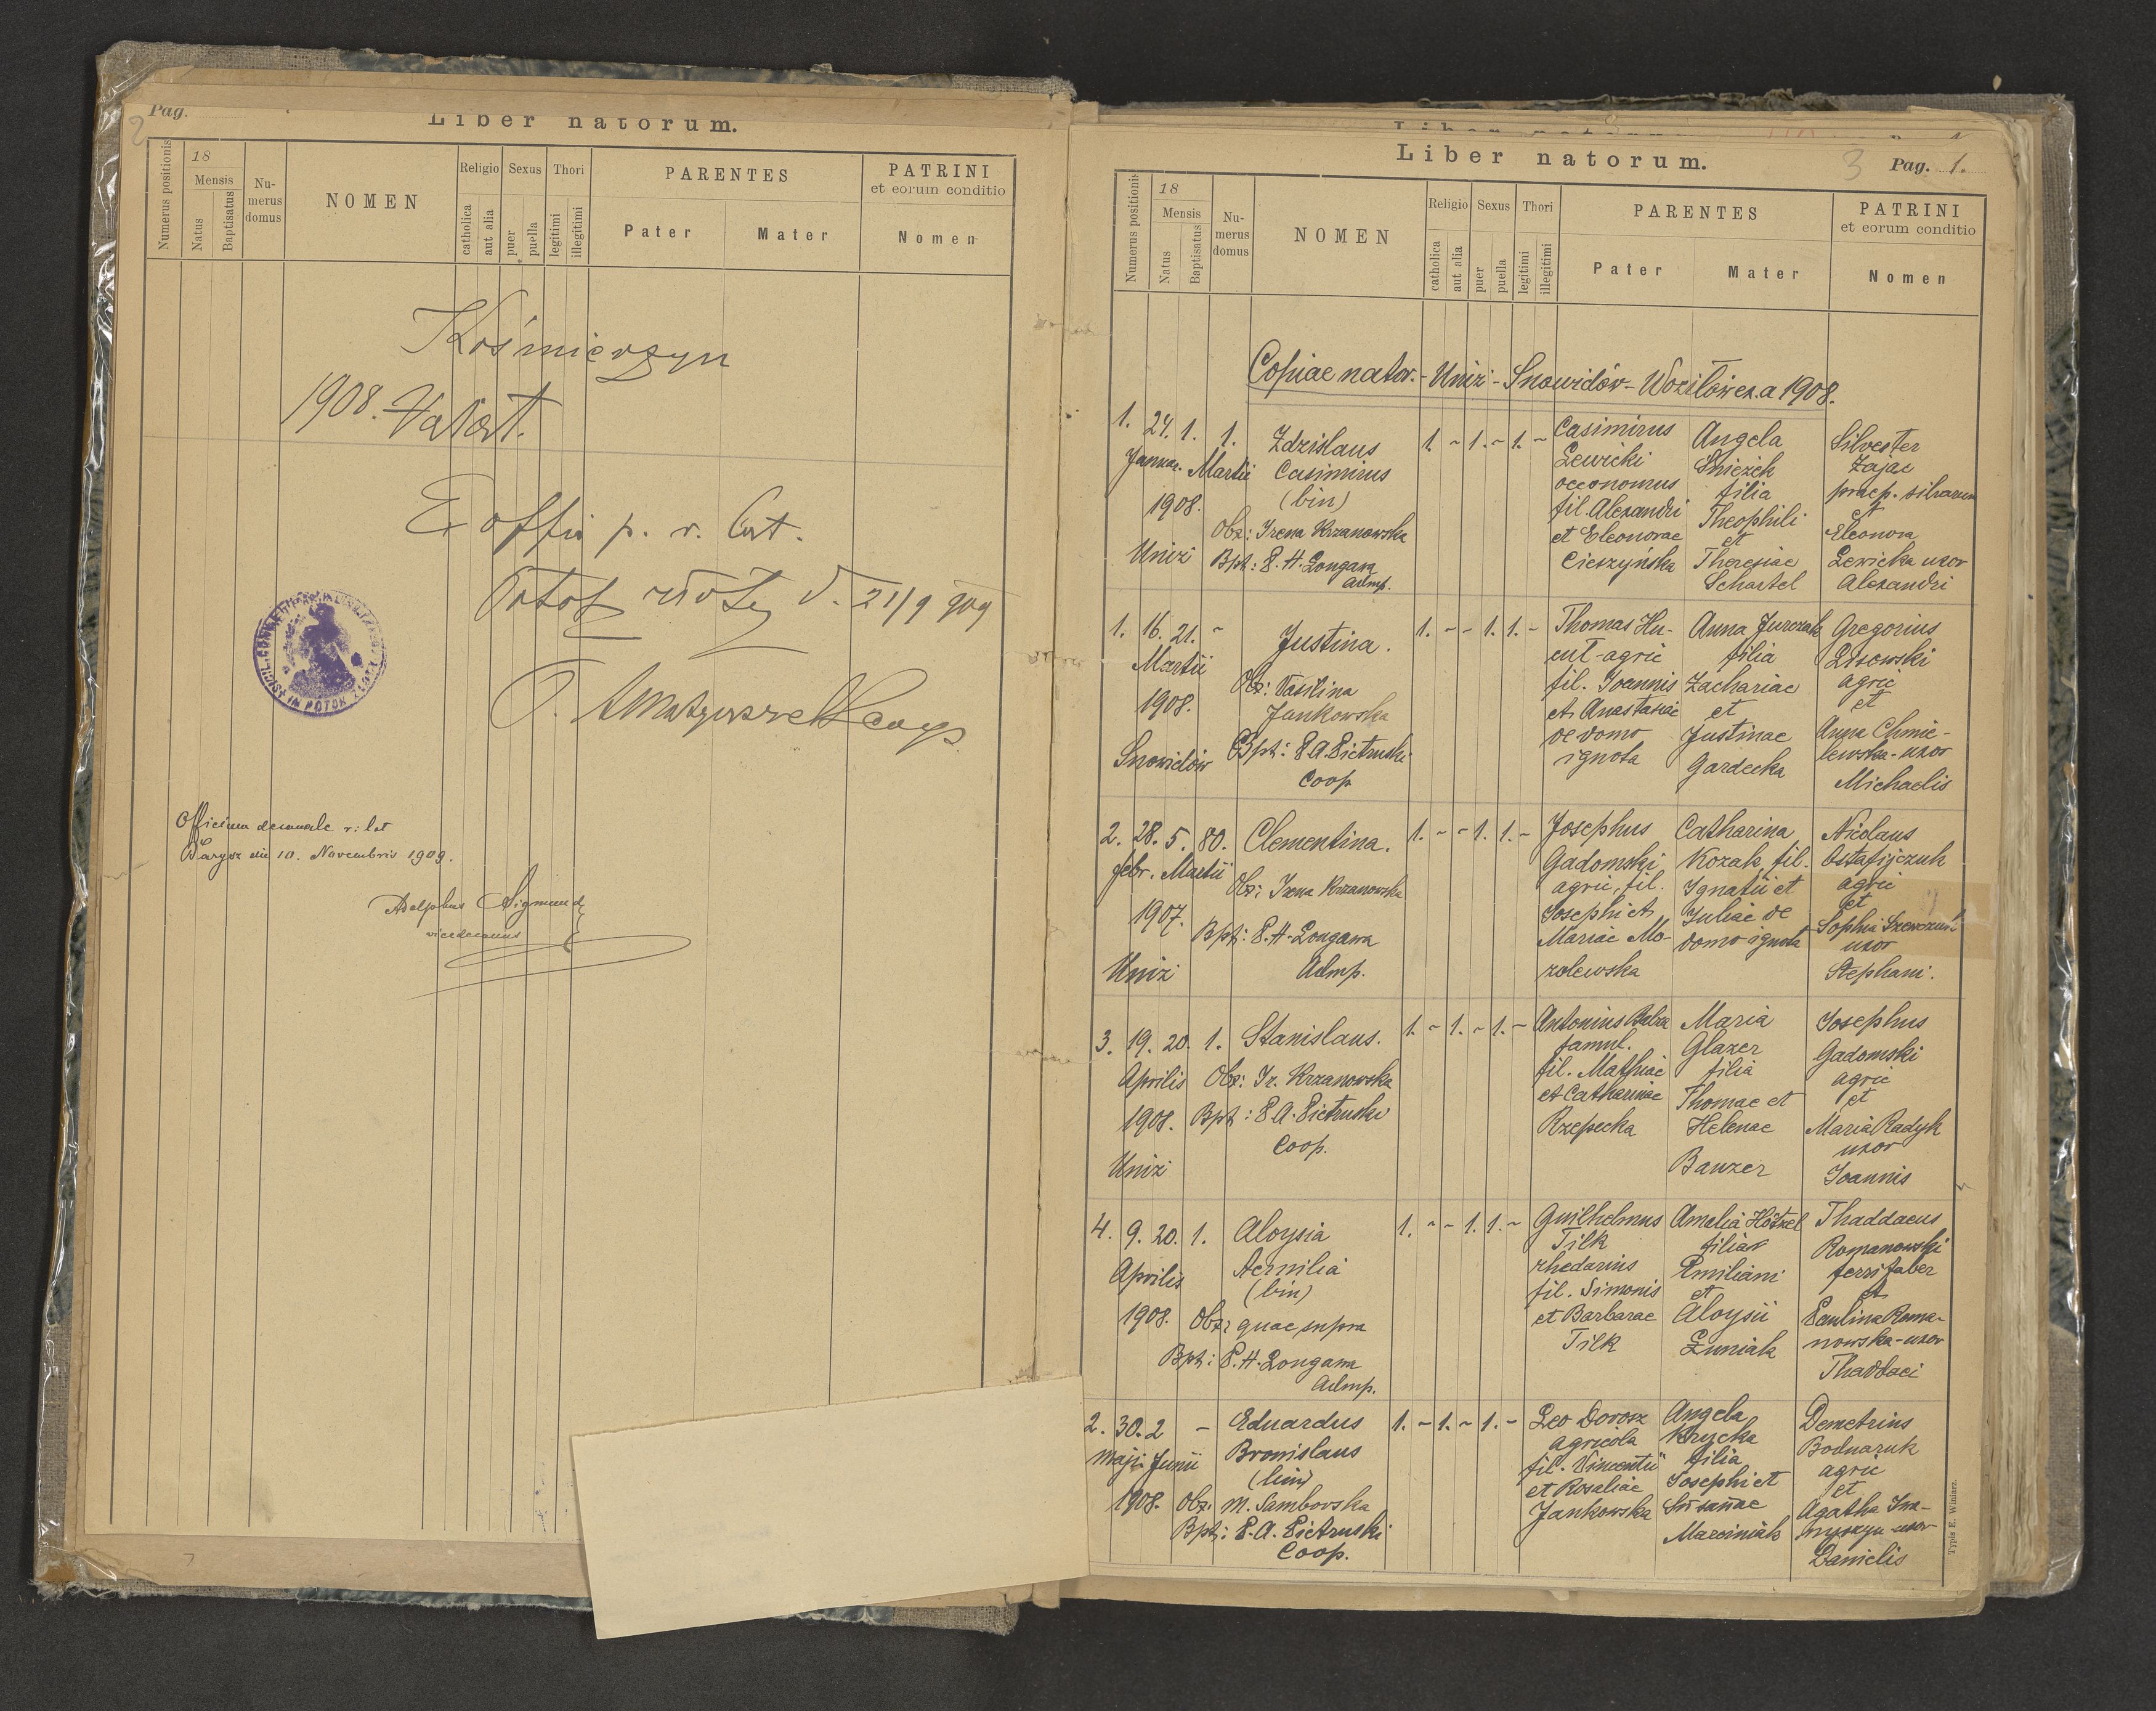 Pag.
2
Liber natorum.
Numerus positionis
18
Mensis
Natus
Baptisatus
Nu-
merus
domus
NOMEN
Religio
catholica
aut alia
Sexus
puer
puella
Thori
legitimi
illegitimi
PARENTES
Pater
Mater
PATRINI
et eorum conditio
Nomen
Kośmierzyn
1908.
E offi p. r. lat.
Potok złoty d. 21/9 909
Officium decanale r: lat
Barysz die 10. Novembris 1909.
Adolphus Sigmund
vicedecanus
IN POTOK
Liber natorum.
3
Pag. 1.
Numerus positionis
18
Mensis
Natus
Baptisatus
Nu-
merus
domus
NOMEN
Religio
catholica
aut alia
Sexus
puer
puella
Thori
legitimi
illegitimi
PARENTES
Pater
Mater
PATRINI
et eorum conditio
Nomen
Copiae nator. - Uniż - Snowidów - Woziłów ex. a 1908.
1. 24. 1. 1.
Januar. Martii
1908.
Uniż
Zdzislaus
Casimirus
(bin)
Obz: Irena Krzanowska
Bpt: P. H. Longawa
Admp.
1. ~ 1. ~ 1. ~
Casimirus
Lewicki
oeconomus
fil. Alexandri
et Eleonorae
Cieszyńska
Angela
Śnieżek
filia
Theophili
et
Theresiae
Schastel
Silvester
Zając
praep. silvarum
et
Eleonora
Lewicka uxor
Alexandri
1. 16. 21. ~
Martii
1908.
Snowidów
Justina.
Obz: Vasilina
Jankowska
Bpt: P. A. Pietruski
Coop
1. ~ ~ 1. 1. ~
Thomas Hu-
cuł - agric
fil. Joannis
et Anastasiae
de domo
ignota
Anna Jurczak
filia
Zachariae
et
Justinae
Gardecka
Gregorius
Lisowski
agric
et
Anna Chmie-
lewska - uxor
Michaelis
2. 28. 5. 80.
febr. Martii
1907.
Uniż
Clementina.
Obz: Irena Krzanowska
Bpt: P. H. Longawa
Admp.
1. ~ ~ 1. 1. ~
Josephus
Gadomski
agric, fil.
Josephi et
Mariae Mo-
rolewska
Catharina
Kozak fil.
Ignatii et
Juliae de
domo ignota
Nicolaus
Ostafijczuk
agric
et
Sophia Szewczuk
uxor
Stephani.
3. 19. 20. 1.
Aprilis
1908.
Uniż
Stanislaus.
Obz: Ir. Krzanowska
Bpt: P. A. Pietruski
Coop.
1. ~ 1. ~ 1. ~
Antonius Balza
famul.
fil. Mathiae
et Catharinae
Rzepecka
Maria
Glazer
filia
Thomae et
Helenae
Bauzer
Josephus
Gadomski
agric
et
Maria Radyk
uxor
Joannis
4. 9. 20. 1.
Aprilis
1908.
Aloysia
Aemilia
(bin)
Obz: quae supra
Bpt: P. H. Longawa
Admp.
1. ~ ~ 1. 1. ~
Guilhelmus
Tilk
rhedarius
fil. Simonis
et Barbarae
Tilk
Amalia Hötzel
filia
Emiliani
et
Aloysii
Łuniak
Thaddaeus
Romanowski
ferri faber
et
Paulina Roma-
nowska - uxor
Thaddaei
2. 30. 2 -
Maji. Junii
1908.
Eduardus
Bronislaus
(bin)
Obz. M. Sambovska
Bpt: P. A. Pietruski
Coop.
1. ~ 1. ~ 1. ~
Leo Dorosz
agricola
fil. Vincentii
et Rosaliae
Jankowska
Angela
Krycka
filia
Josephi et
Susannae
Marciniak
Demetrius
Bodnaruk
agric
et
Agatha
uxor
Danielis
Typis E. Winiarz.